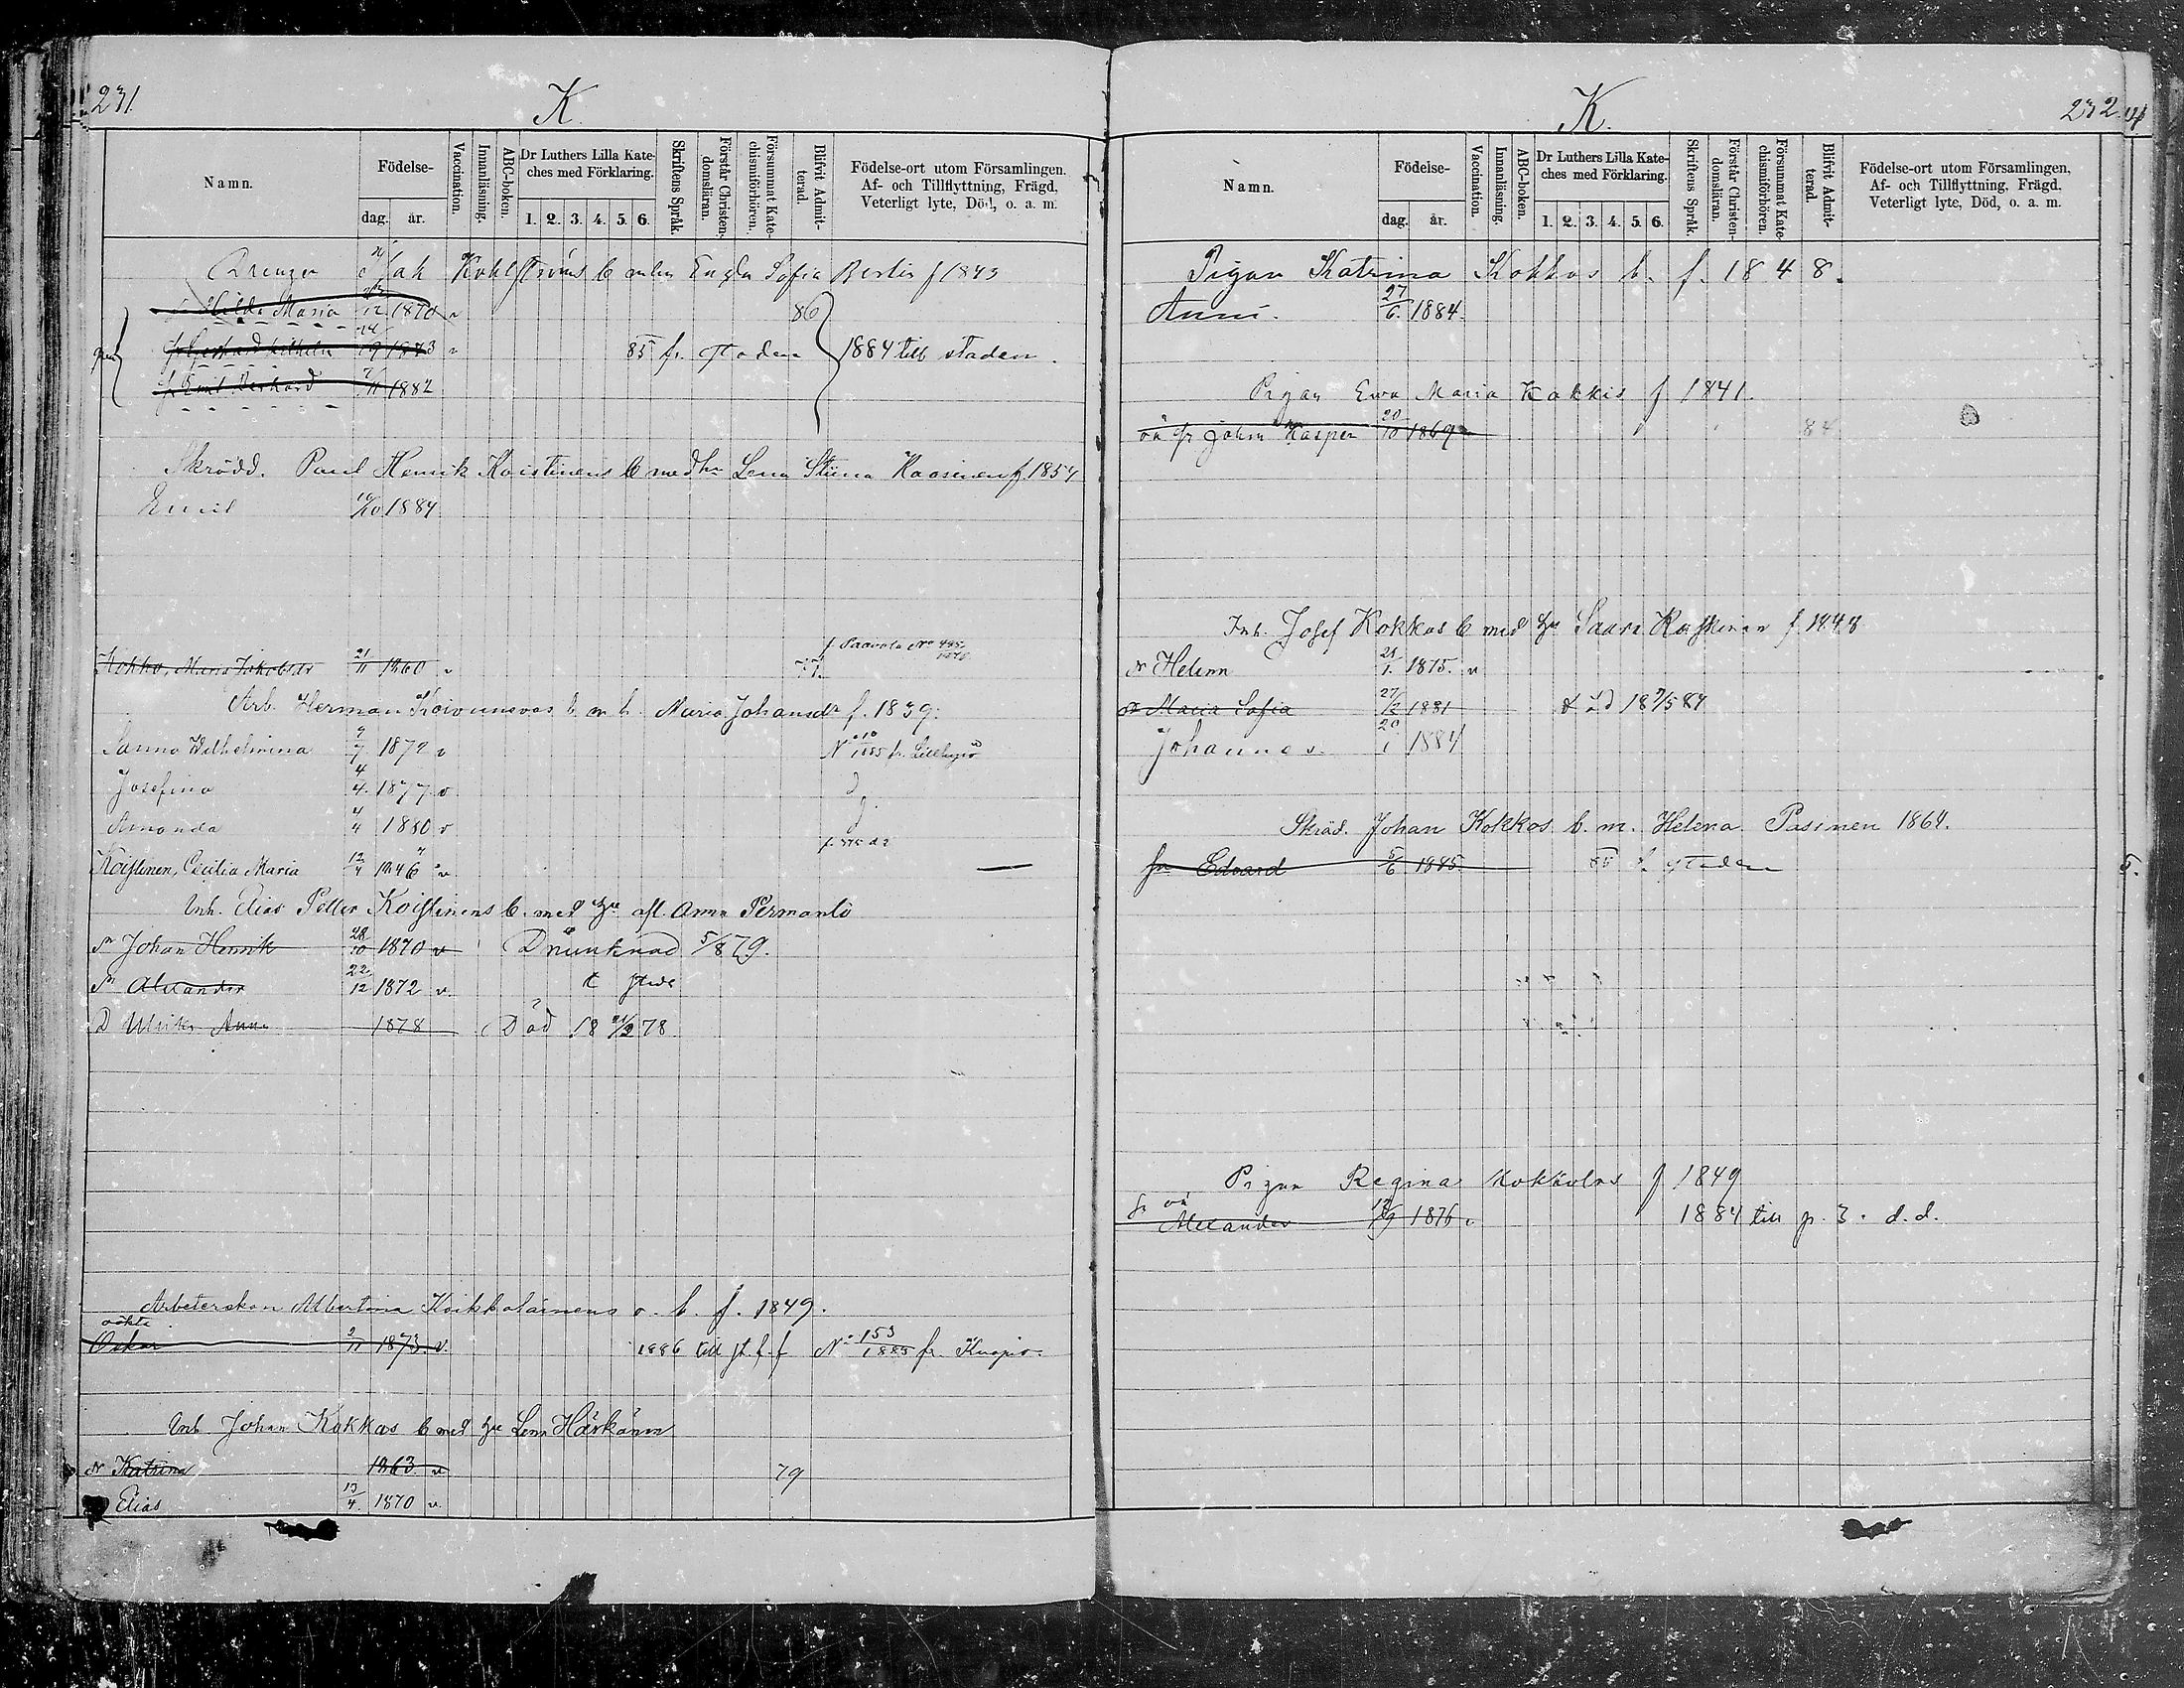 231
K.
Namn.
Födelse-
dag.
år.
Vaccination.
Innanläsning.
ABC-boken.
Dr Luthers Lilla Kate-
ches med Förklaring.
1. 2. 3. 4. 5. 6.
Skriftens Språk.
Förstår Christen-
domsläran.
Försummat Kate-
chismiförhören.
Blifvit Admit-
terad.
Födelse-ort utom Församlingen.
Af- och Tillflyttning, Frägd,
Veterligt lyte, Död, o. a. m.
Drengen Isak Kohlströms b m hu Engla Sofia Bertis f 1843
Hilda Maria 12 1870 v 86
Gerhard Vilhelm 1873 v 85 fr. staden 1884 till staden.
Emil Bernhard 11 1882
Skrädd. Paul Henrik Koistinens b med hu Lena Stiina Kaasinen f 1854
Emil 10/10 1884
f. Paavola No
Kokko, Maria Jakobsdr 21/11 1860 v 77.
Arb. Herman Koivunevas b. m. h. Maria Johansdr f. 1839.
Sanna Wilhelmina 9/7 1872 v No 10/1885 fr.
Josefina 4/4 1877 v d
Amanda 4/4 1880 v d
Koistinen, Cecilia Maria 12/4 1846 v
Inh. Elias Petter Koistinens b. med hu afl. Anna Permanto
Sn Johan Henrik 28/10 1870 v Drunknad 5/8 79.
Sn Alexander 22/12 1872 v. t stad
D Ulrika Anna 1878 Död 18 21/2 78.
Arbeterskan Albertina Koikkalainens o. b. f. 1849.
oäkta
Oskar 2/11 1873 v. 1886 till st. f. f No 153/1885 fr. Kuopio.
Inh Johan Kokkos b med hu Lena Härkönen
Dr Katrina 1863 v 79
Elias 13/4 1870 v.
232
K.
Namn.
Födelse-
dag.
år.
Vaccination.
Innanläsning.
ABC-boken.
Dr Luthers Lilla Kate-
ches med Förklaring.
1. 2. 3. 4. 5. 6.
Skriftens Språk.
Förstår Christen-
domsläran.
Försummat Kate-
chismiförhören.
Blifvit Admit-
terad.
Födelse-ort utom Församlingen,
Af- och Tillflyttning, Frägd,
Veterligt lyte, Död, o. a. m.
Pigan Katrina Kokkos b. f. 1848.
Anni. 27/6 1884.
Pigan Ewa Maria Kokkis f 1841.
oä gr Johan Kasper 20/10 1869 84
Inh. Josef Kokkos b med hu Saara Koskinen f 1848
Dr Helena 21/1. 1875. v
Dr Maria Sofia 27/2 1881 död 18 7/5 84
Johannes 20/1 1884
Skräd. Johan Kokkos b. m. Helena Pasinen 1864.
fr Edvard 5/6 1885 85 f. staden
5.
Pigan Regina Kokkolas f 1849
fr oä
Alexander 12/9 1876 v 1884 till p. 3. d. d.